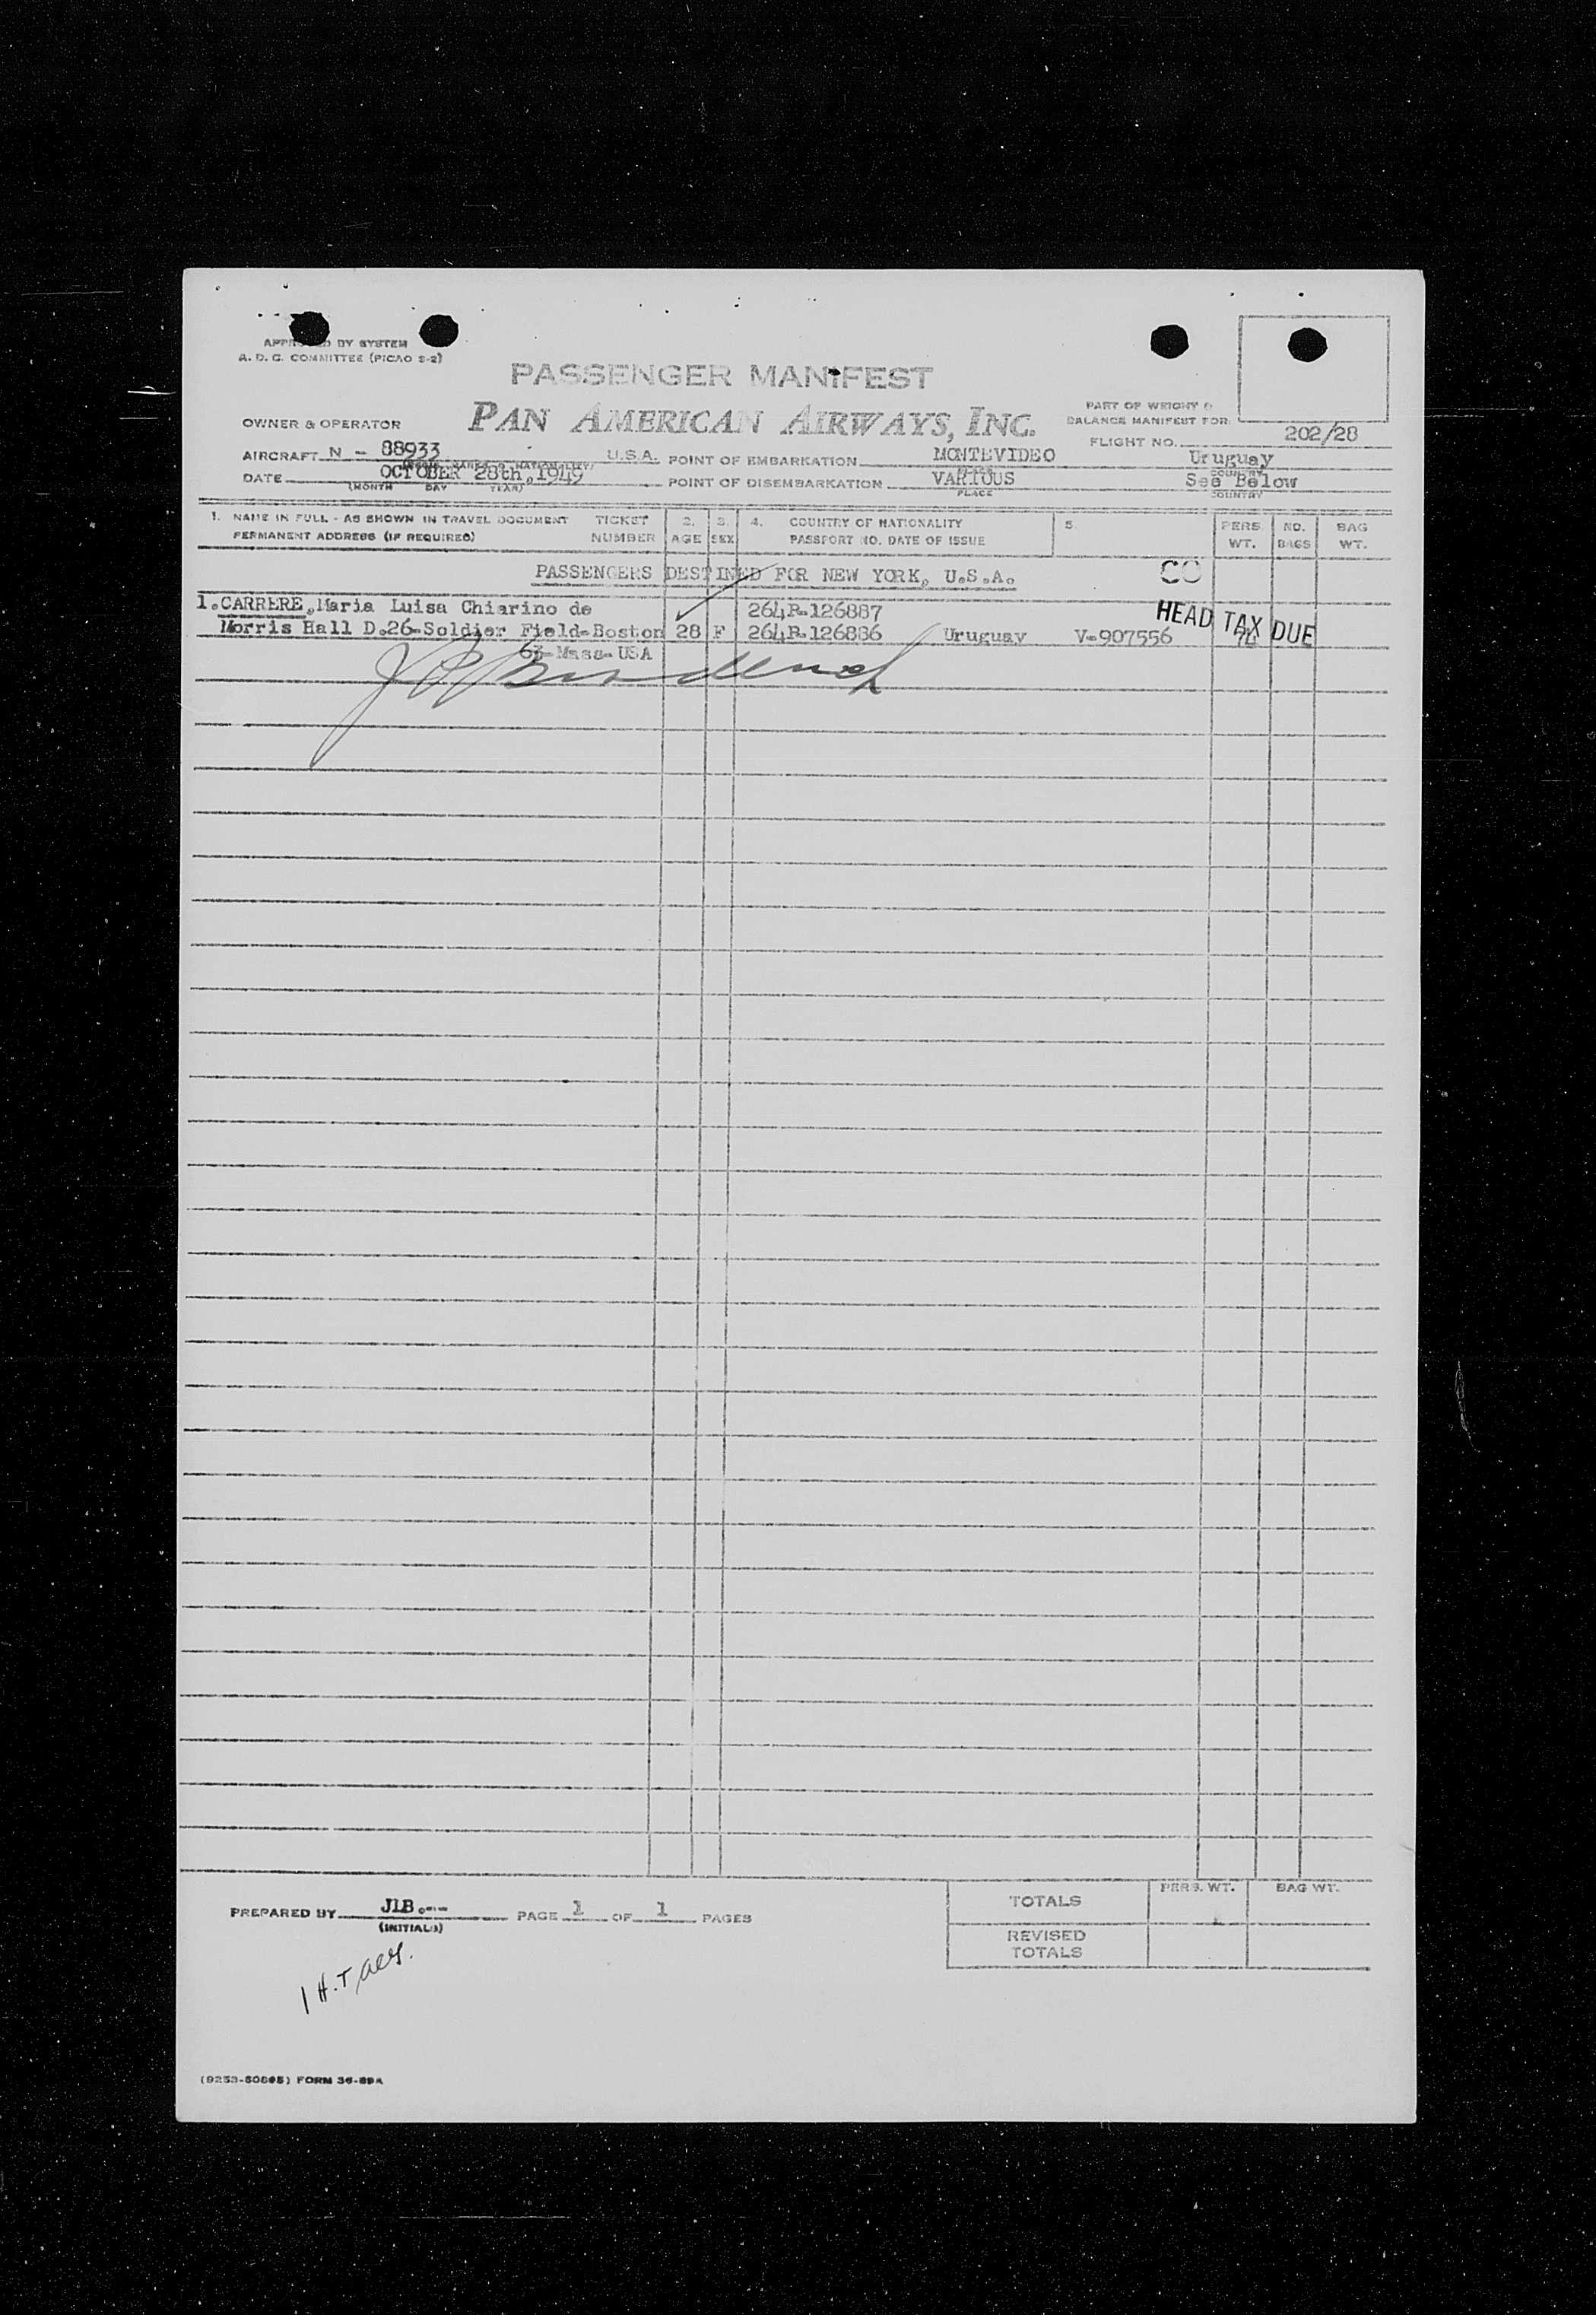 APPROVED BY SYSTEM
A. D. C. COMMITTEE (PICAO S-2)
PASSENGER MANIFEST
PAN AMERICAN AIRWAYS, INC.
PART OF WEIGHT &
BALANCE MANIFEST FOR:
OWNER & OPERATOR
FLIGHT NO. 202/28
AIRCRAFT N - 88933 U.S.A. POINT OF EMBARKATION MONTEVIDEO Uruguay
PLACE COUNTRY
DATE OCTOBER 28th, 1949 POINT OF DISEMBARKATION VARIOUS See Below
(MONTH DAY YEAR) PLACE COUNTRY
1. NAME IN FULL - AS SHOWN IN TRAVEL DOCUMENT TICKET 2. 3. 4. COUNTRY OF NATIONALITY 5. PERS. NO. BAG
PERMANENT ADDRESS (IF REQUIRED) NUMBER AGE SEX PASSPORT NO. DATE OF ISSUE WT. BAGS WT.
PASSENGERS DESTINED FOR NEW YORK, U.S.A. CO
1.CARRERE,Maria Luisa Chiarino de 264R-126887
HEAD TAX DUE
Morris Hall D.26-Soldier Field-Boston 28 F 264R-126886 Uruguay V-907556
63-Mass-USA
PREPARED BY JLB.
(INITIALS)
PAGE 1 OF 1 PAGES
PERS. WT. BAG WT.
TOTALS
REVISED
TOTALS
1 H.T
FORM 36-89A